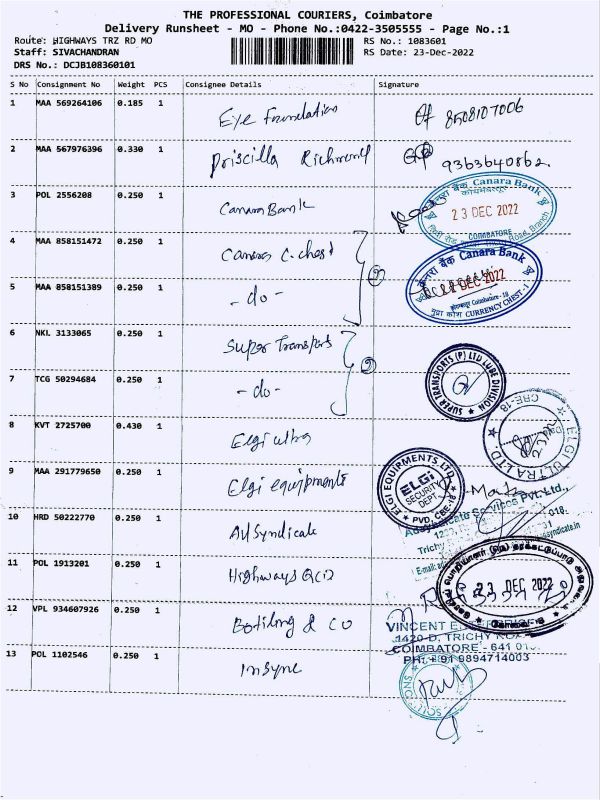 THE PROFESSIONAL COURIERS, Coimbatore
Delivery Runsheet - MO - Phone No.:0422-3505555 - Page No.:1
Route: HIGHWAYS TRZ RD MO RS No.: 1083601
Staff: SIVACHANDRAN RS Date: 23-Dec-2022
DRS No.: DCJB108360101
S No Consignment No Weight PCS Consignee Details Signature
1 MAA 569264106 0.185 1 Eye Foundation 8508107006
2 MAA 567976396 0.330 1 Priscilla Richmond 9363640862
3 POL 2556208 0.250 1 Canara Bank
केनरा बैंक Canara Bank
23 DEC 2022
COIMBATORE
Road, Branch
4 MAA 858151472 0.250 1 Canara C. chest
5 MAA 858151389 0.250 1 - do - 2
केनरा बैंक Canara Bank
DEC 2022
Coimbatore - 18
मुद्रा कोश CURRENCY CHEST - 1
6 NKL 3133065 0.250 1 Super Transports
7 TCG 50294684 0.250 1 - do - 2
SUPER TRANSPORTS (P) LTD LUBE DIVISION
8 KVT 2725700 0.430 1 Elgi ultra
ELGI ULTRA LTD CBE-18
9 MAA 291779650 0.250 1 Elgi equipments
ELGI EQUIPMENTS LTD
ELGi
SECURITY
DEPT.
PVD, CBE-18
10 HRD 50222770 0.250 1 Ad Syndicate
Adsyndicate Services Pvt. Ltd.,
Trichy
E-mail:
11 POL 1913201 0.250 1 Highways
23 DEC 2022
12 VPL 934607926 0.250 1 & CO
VINCENT
1420-D, TRICHY
COIMBATORE - 641
PH: +91 9894714003
13 POL 1102546 0.250 1 Insync
SOLUTIONS